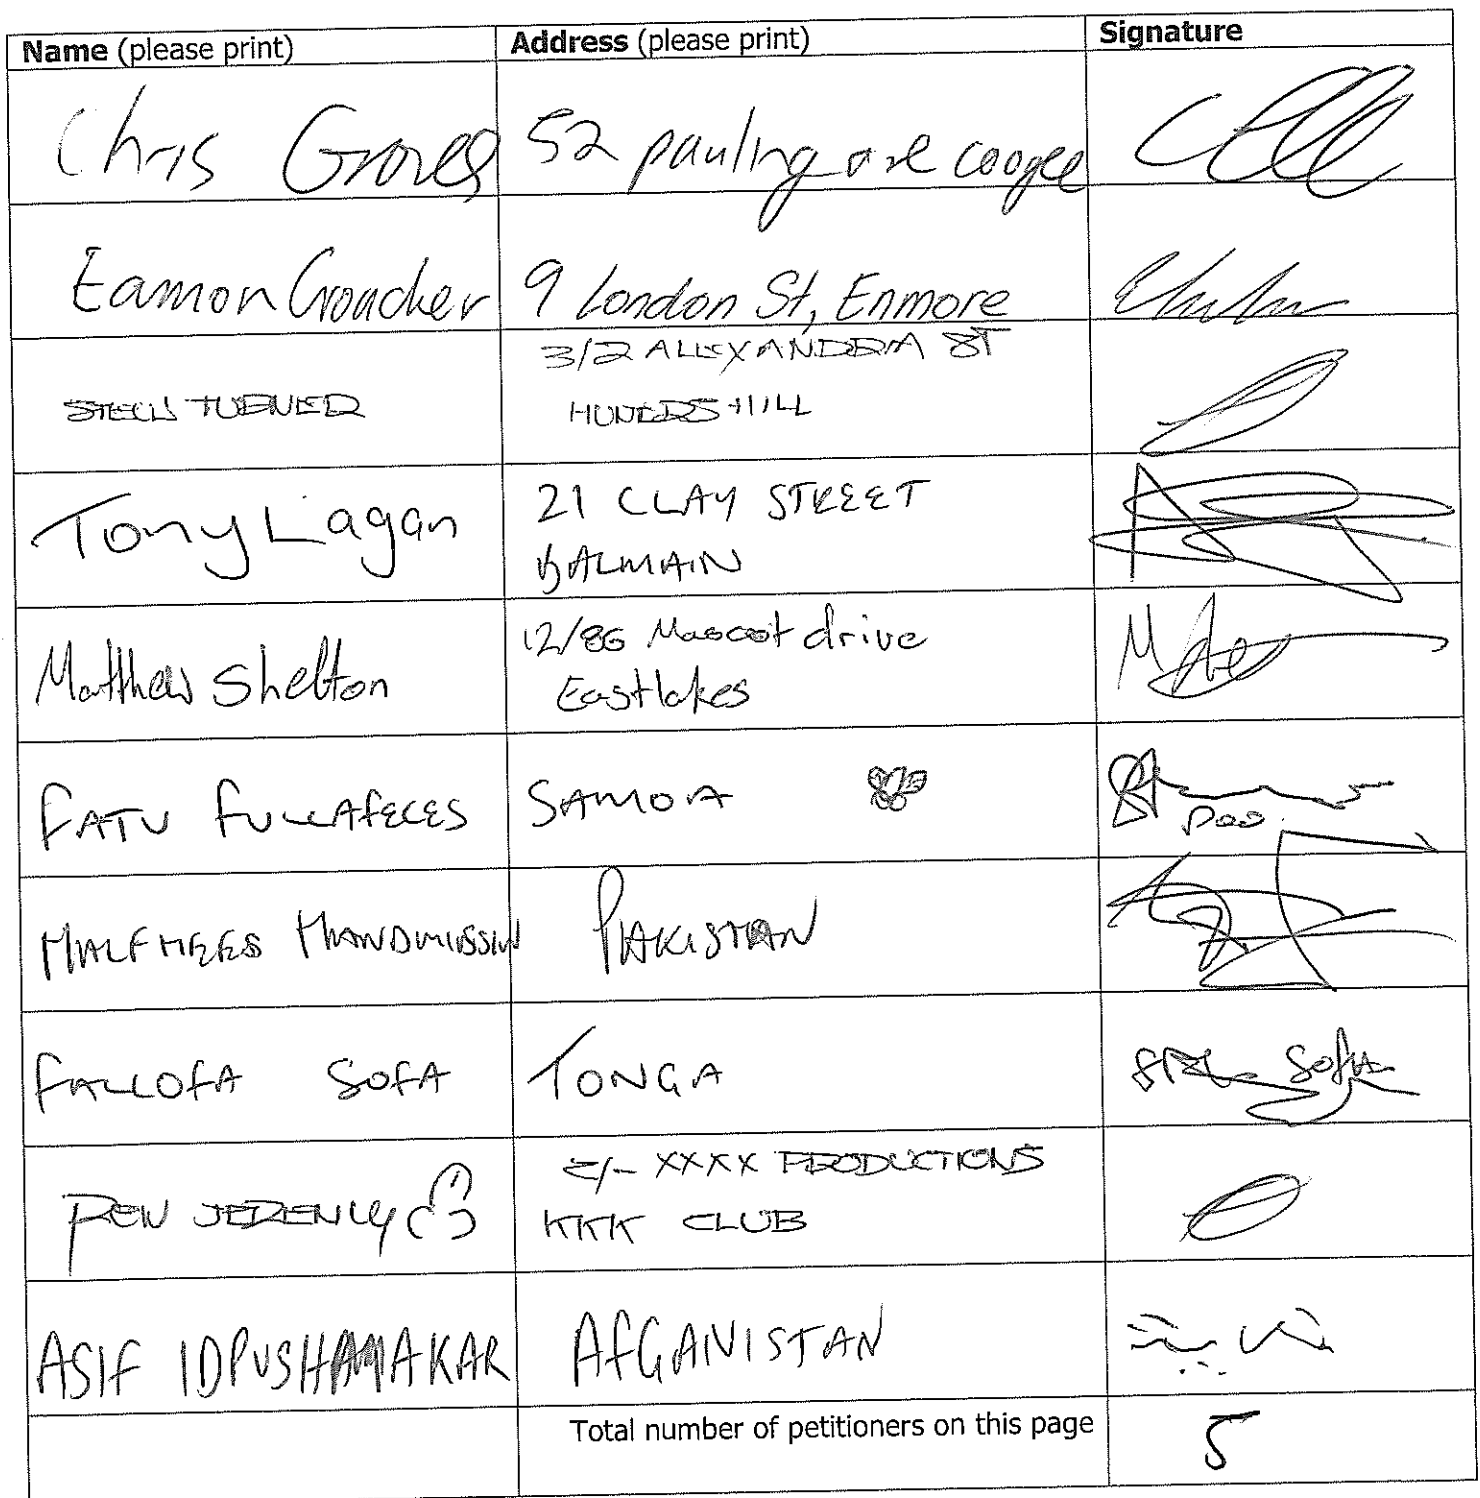 Name (please print) Address (please print) Signature
Chris Groves 52 pauling ave coogee
Eamon Croacher 9 London St, Enmore
3/2 ALEXANDRA ST
TURNER HUNTERS HILL
Tony Lagan 21 CLAY STREET
BALMAIN
Matthew Shelton 12/86 Mascot drive
Eastlakes
FATU FULLAFECES SAMOA
Poo
HALFHEES HANDMISSIN PAKISTAN
FALLOFA SOFA TONGA Sofa
C/- XXXX PRODUCTIONS
KKK CLUB
ASIF IDPUSHAMAKAR AFGANISTAN
Total number of petitioners on this page 5